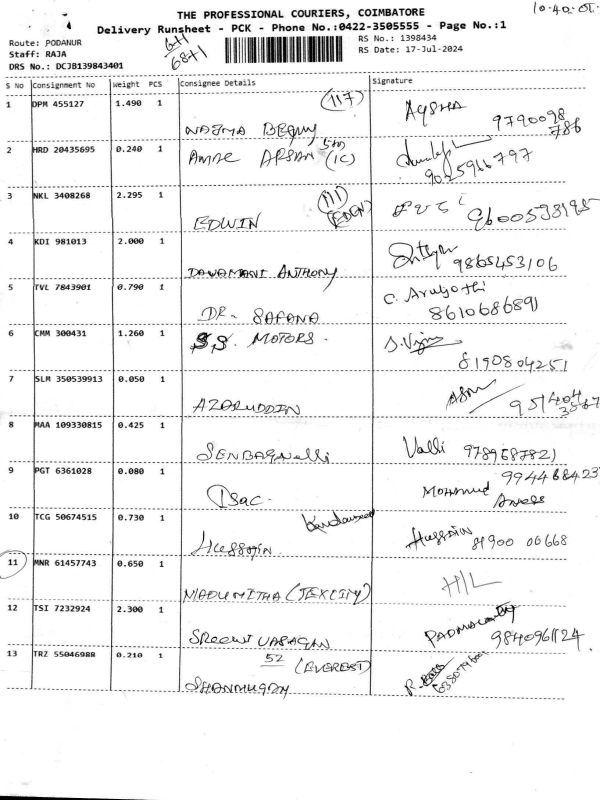 10.40.
THE PROFESSIONAL COURIERS, COIMBATORE
Delivery Runsheet - PCK - Phone No.:0422-3505555 - Page No.:1
Route: PODANUR
Staff: RAJA
DRS No.: DCJB139843401
6871
RS No.: 1398434
RS Date: 17-Jul-2024
S No Consignment No Weight PCS Consignee Details Signature
1 DPM 455127 1.490 1 (117) AYSHA
NAZMA BEGUM 9790098
786
2 HRD 20435695 0.240 1 ARSAN (1C)
9025966797
3 NKL 3408268 2.295 1 (111)
EDWIN (EDEN) 9600538195
4 KDI 981013 2.000 1
DAWAMANI ANTHONY 9865453106
5 TVL 7843901 0.790 1 C. Aruljothi
DR. SAFANA 8610686891
6 CMM 300431 1.260 1 S.S. MOTORS. S. Vijay
8190804251
7 SLM 350539913 0.050 1
AZARUDDIN 951404
8 MAA 109330815 0.425 1 Valli 9789687821
SENBAGAVALLI
9 PGT 6361028 0.080 1 994468423
Isac. Mohamed
10 TCG 50674515 0.730 1
Hussain Hussain 81900 00668
11 MNR 61457743 0.650 1 H/L
MADUMITHA (TEXCITY)
12 TSI 7232924 2.300 1
9840961124
13 TRZ 55046988 0.210 1 52 (EVEREST)
SHANMUGAM